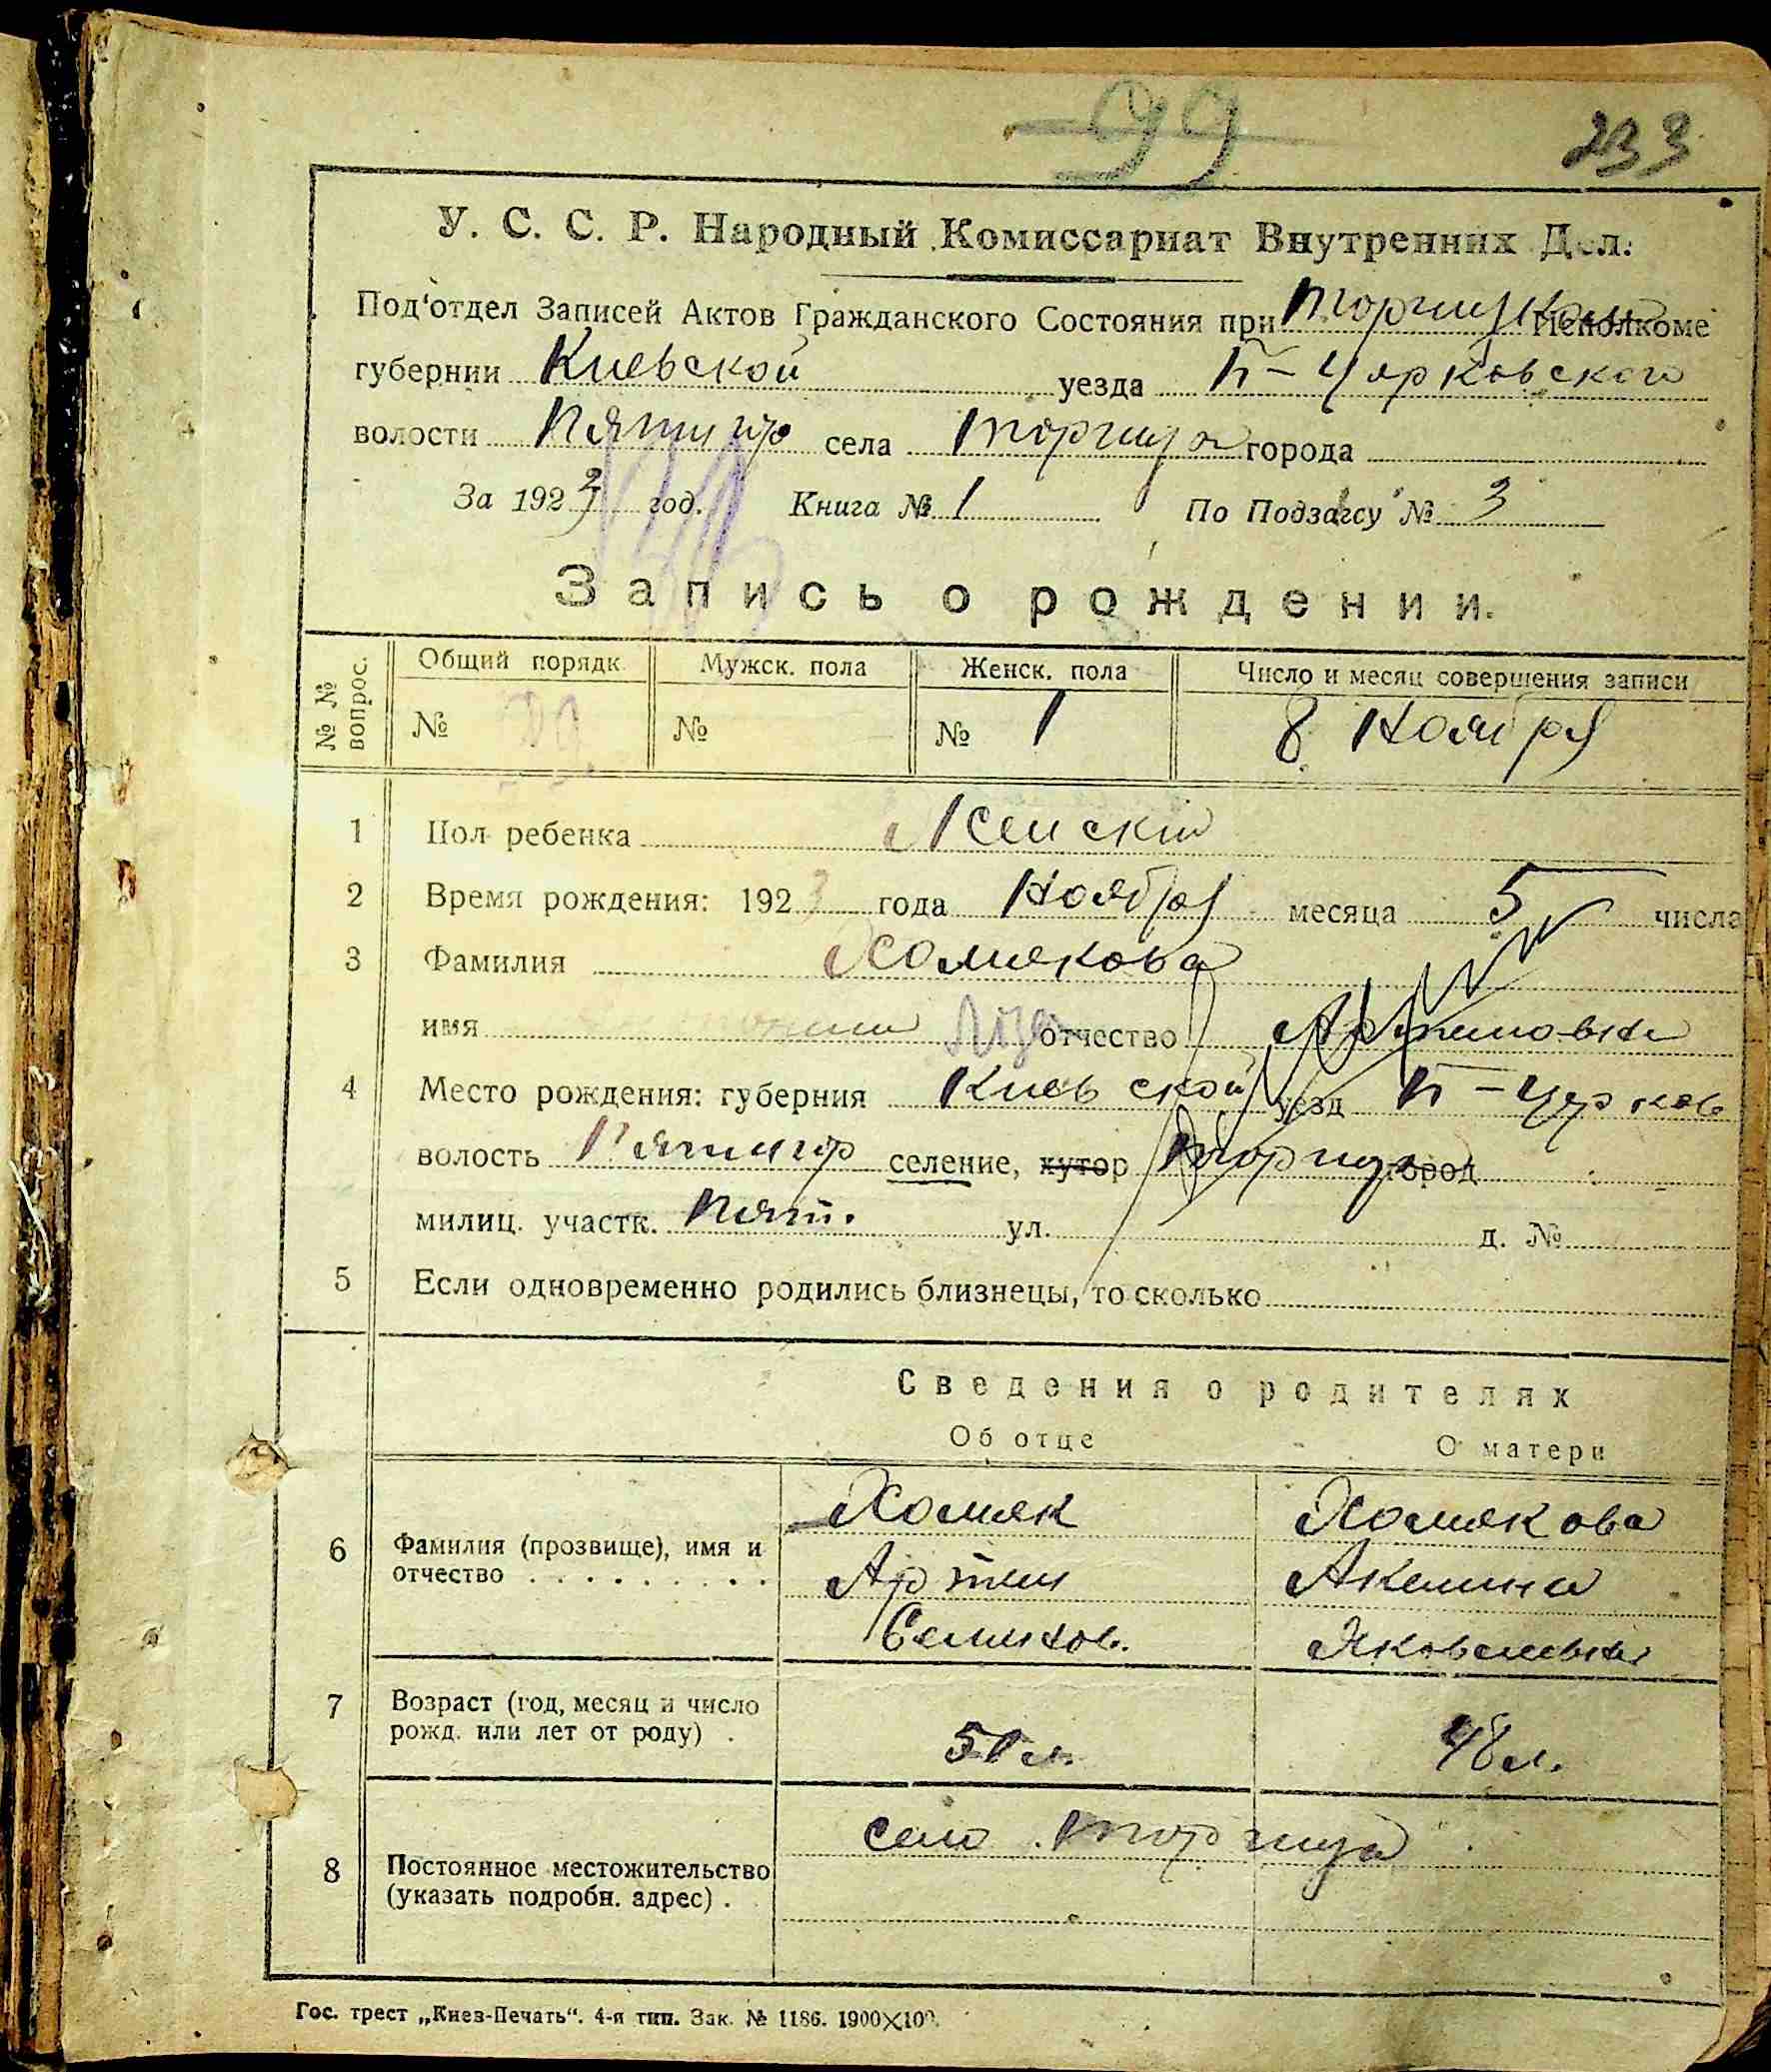 99
233
У. С. С. Р. Народный Комиссариат Внутренних Дел.
Под'отдел Записей Актов Гражданского Состояния при Исполкоме
губернии Киевской уезда Б-Церковского
волости Пятигор села Торчица города
За 1923 год. Книга № 1 По Подзагсу № 3
Запись о рождении.
№ № вопрос. Общий порядк. Мужск. пола Женск. пола Число и месяц совершения записи
№ № № 1 8 Ноября
1 Пол ребенка Женский
2 Время рождения: 1923 года Ноября месяца 5 числа
3 Фамилия Хомякова
имя отчество Артемовна
4 Место рождения: губерния Киевской уезд Б-Церков
волость Пятигор селение, хутор Торчица город
милиц. участк. Пят. ул. д. №
5 Если одновременно родились близнецы, то сколько
Сведения о родителях
Об отце О матери
Хомяк Хомякова
6 Фамилия (прозвище), имя и отчество Артем Акилина
Семенов. Яковлевна
7 Возраст (год, месяц и число рожд. или лет от роду) 50 л. 48 л.
село Торчица
8 Постоянное местожительство (указать подробн. адрес) .
Гос. трест „Киев-Печать“. 4-я тип. Зак. № 1186. 1900×100.